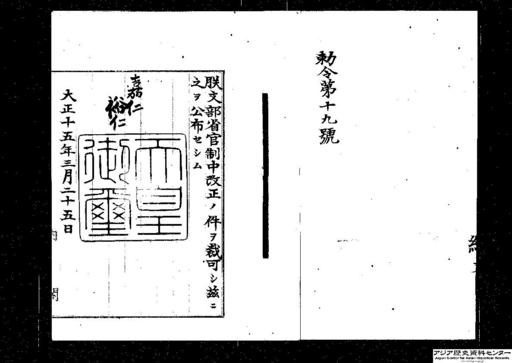 勅令第十九號
朕文部省官制中改正ノ件ヲ裁可シ茲ニ
之ヲ公布セシム
嘉仁
裕仁
天皇
御璽
大正十五年三月二十五日
内
閣
アジア歴史資料センター
Japan Center for Asian Historical Records